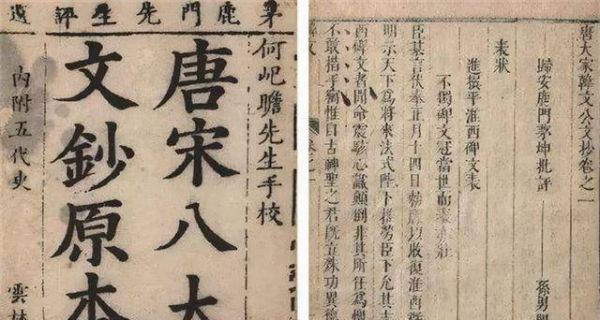 茅鹿門先生評選
何屺瞻先生手校
唐宋八大
文鈔原本
內附五代史
雲林
唐大家韓文公文抄卷之一
歸安鹿門茅坤批評
孫男闇
表狀
進撰平淮西碑文表
不獨碑文冠當世而表亦壯
臣某言伏奉正月十四日勑牒以收復淮西
明示天下為將來法式陛下推勞臣下允其志
西碑文者聞命震駭心識顛倒非其所任為愧
不敢措手竊惟自古神聖之君既立殊功異德